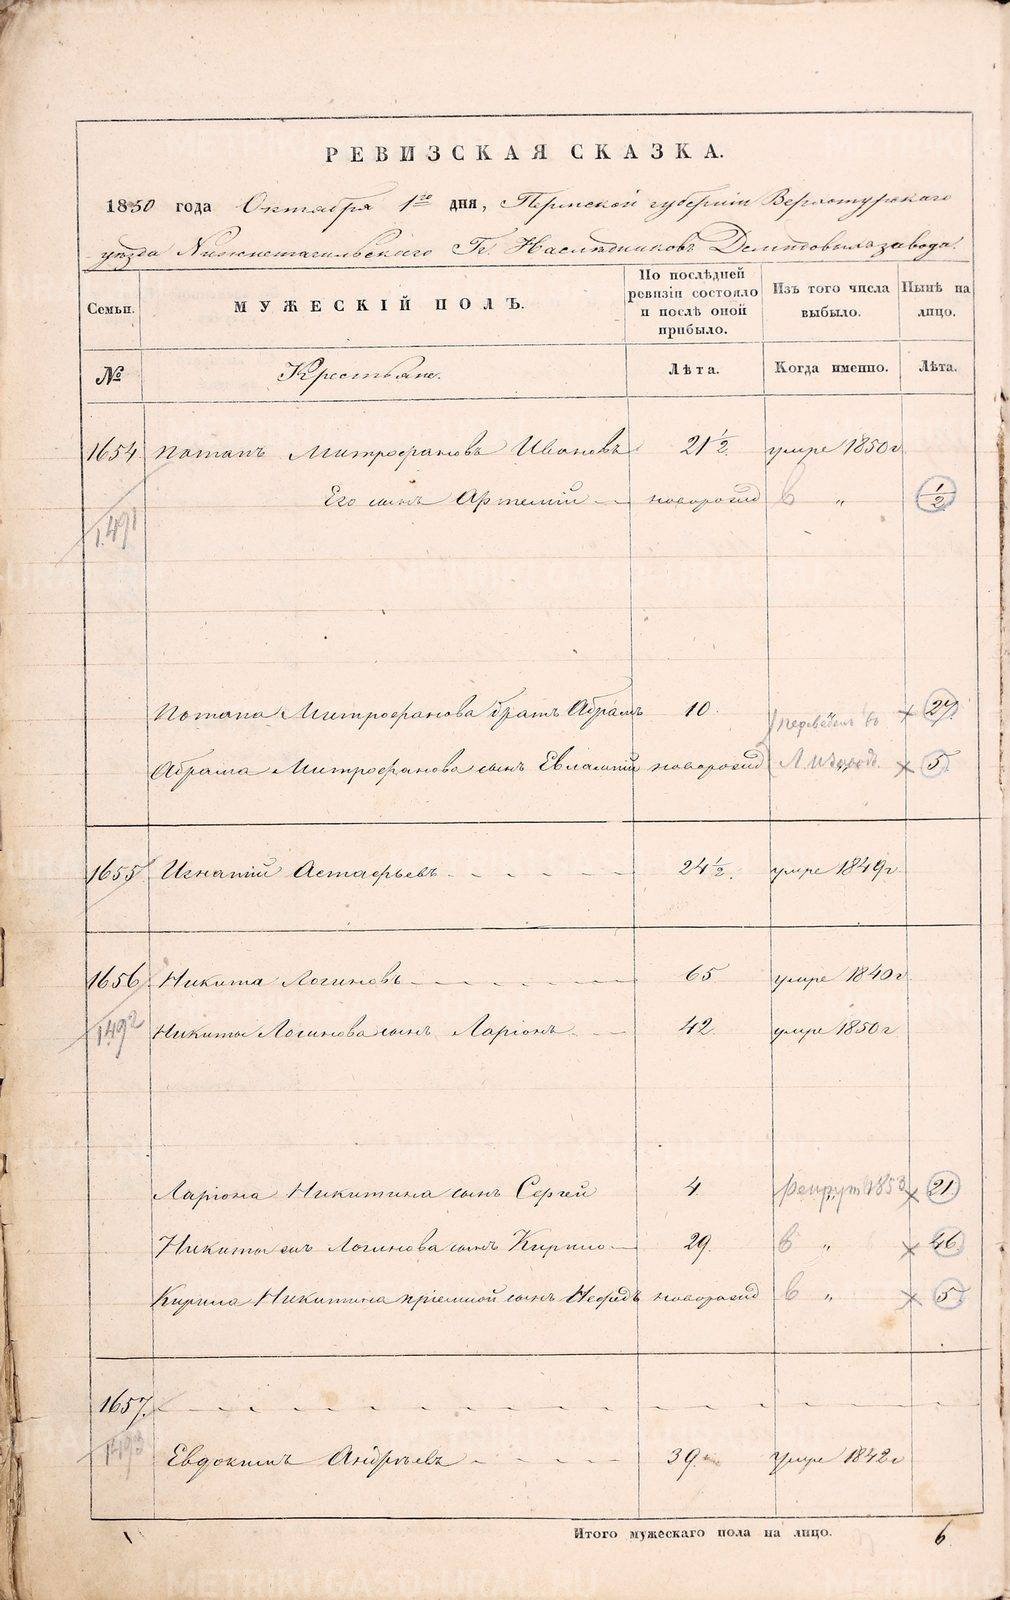 РЕВИЗСКАЯ СКАЗКА.
1850 года Октября 1го дня, Пермской губерніи Верхотурскаго
уезда Нижнетагильскаго Гг. Наследниковъ Демидовыхъ завода.
Семьи.
МУЖЕСКІЙ ПОЛЪ.
По послѣдней ревизіи состояло и послѣ оной прибыло.
Изъ того числа выбыло.
Нынѣ на лицо.
№
Крестьяне.
Лѣта.
Когда именно.
Лѣта.
1654 Потапъ Митрофановъ Ивановъ 21½ умре 1850 г
Его сынъ Артемій новорожд в „ ½
1491
Потапа Митрофанова братъ Абрамъ 10. переведен во 27.
Абрама Митрофанова сынъ Евлампій новорожд 5.
1655 Игнатій Астафьевъ 24½. умре 1849 г
1656 Никита Логиновъ 65 умре 1840 г
1492 Никиты Логинова сынъ Ларіонъ 42 умре 1850 г
Ларіона Никитина сынъ Сергей 4 рекрут 1853 21.
Никиты Логинова сынъ Кирило 29. в „ 46.
Кирила Никитина пріемной сынъ Нефедъ новорожд в „ 5.
1657.
1493 Евдокимъ Андреевъ 39 умре 1842 г
Итого мужескаго пола на лицо. 6
METRIKI.GASO-URAL.RU